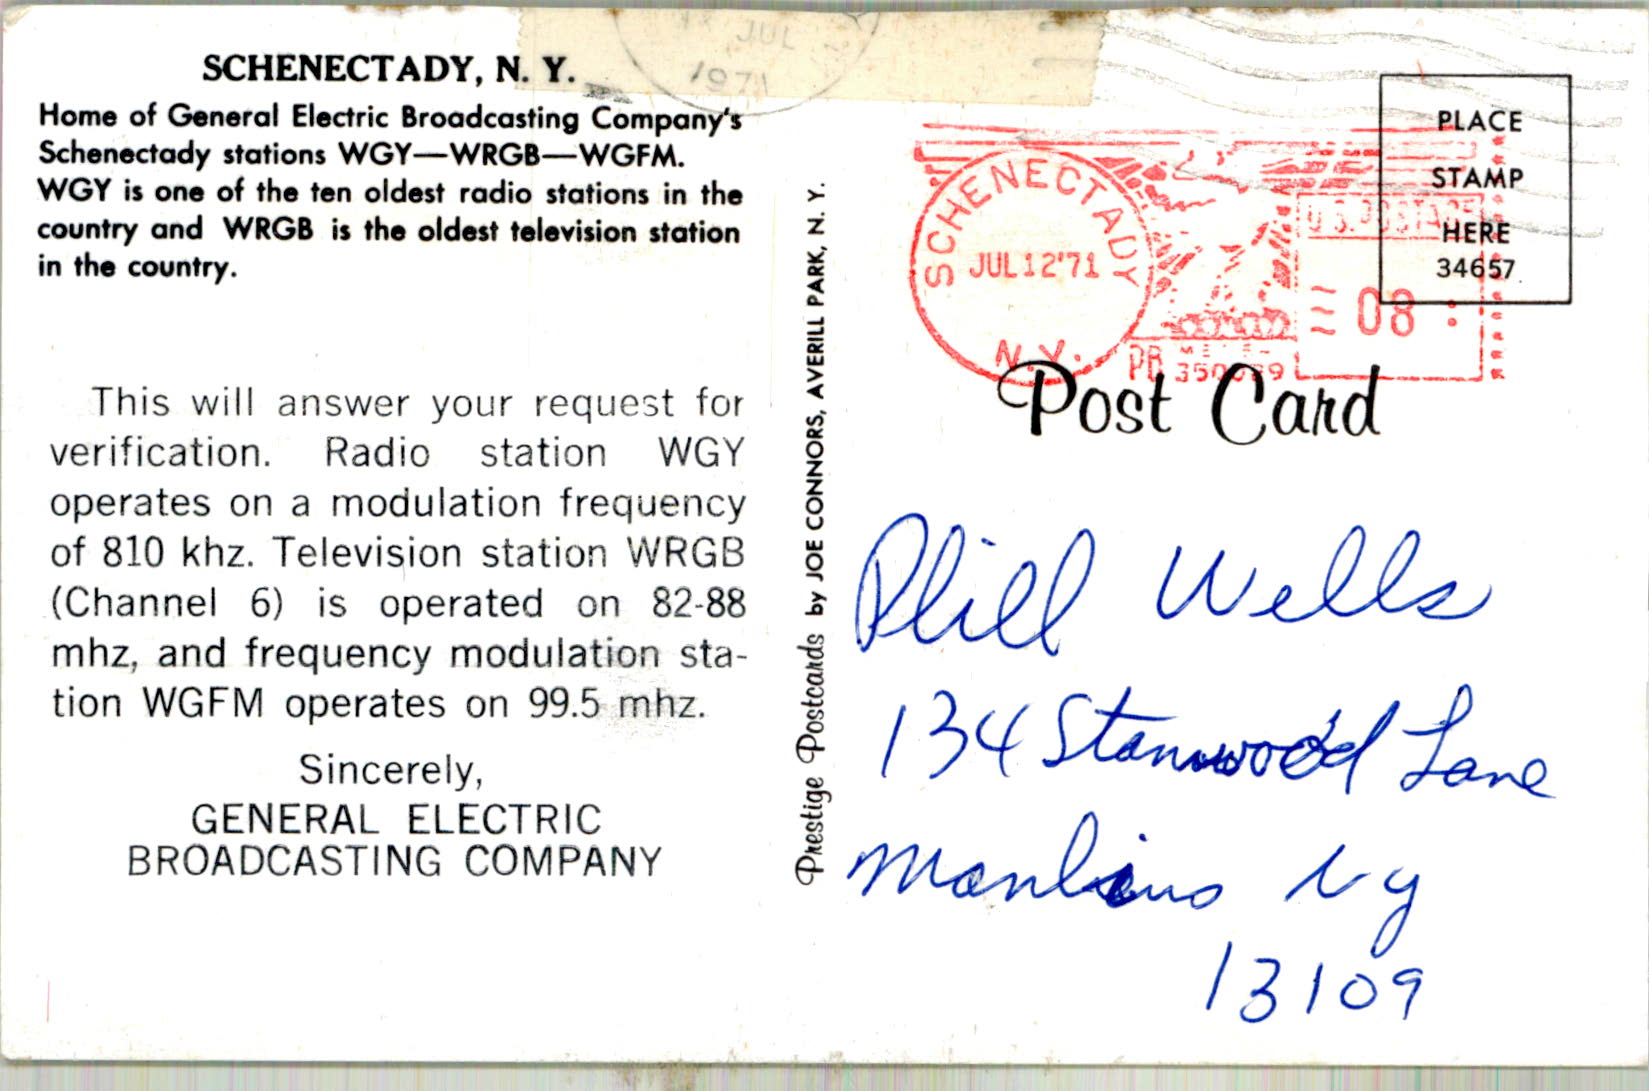 SCHENECTADY, N. Y.
Home of General Electric Broadcasting Company's
Schenectady stations WGY—WRGB—WGFM.
WGY is one of the ten oldest radio stations in the
country and WRGB is the oldest television station
in the country.
This will answer your request for
verification. Radio station WGY
operates on a modulation frequency
of 810 khz. Television station WRGB
(Channel 6) is operated on 82-88
mhz, and frequency modulation sta-
tion WGFM operates on 99.5 mhz.
Sincerely,
GENERAL ELECTRIC
BROADCASTING COMPANY
Prestige Postcards by JOE CONNORS, AVERILL PARK, N. Y.
JUL
1971
SCHENECTADY
JUL 12 '71
N.Y.
U.S. POSTAGE
08
PB METER
PLACE
STAMP
HERE
34657
Post Card
Phill Wells
134 Stanwood Lane
Manlius NY
13109